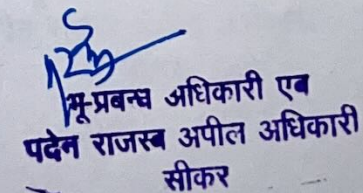 भू-प्रबन्ध अधिकारी एब
पदेन राजस्ब अपील अधिकारी
सीकर